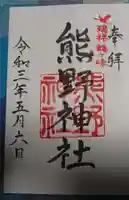 奉拝
熊野神社
令和三年五月六日